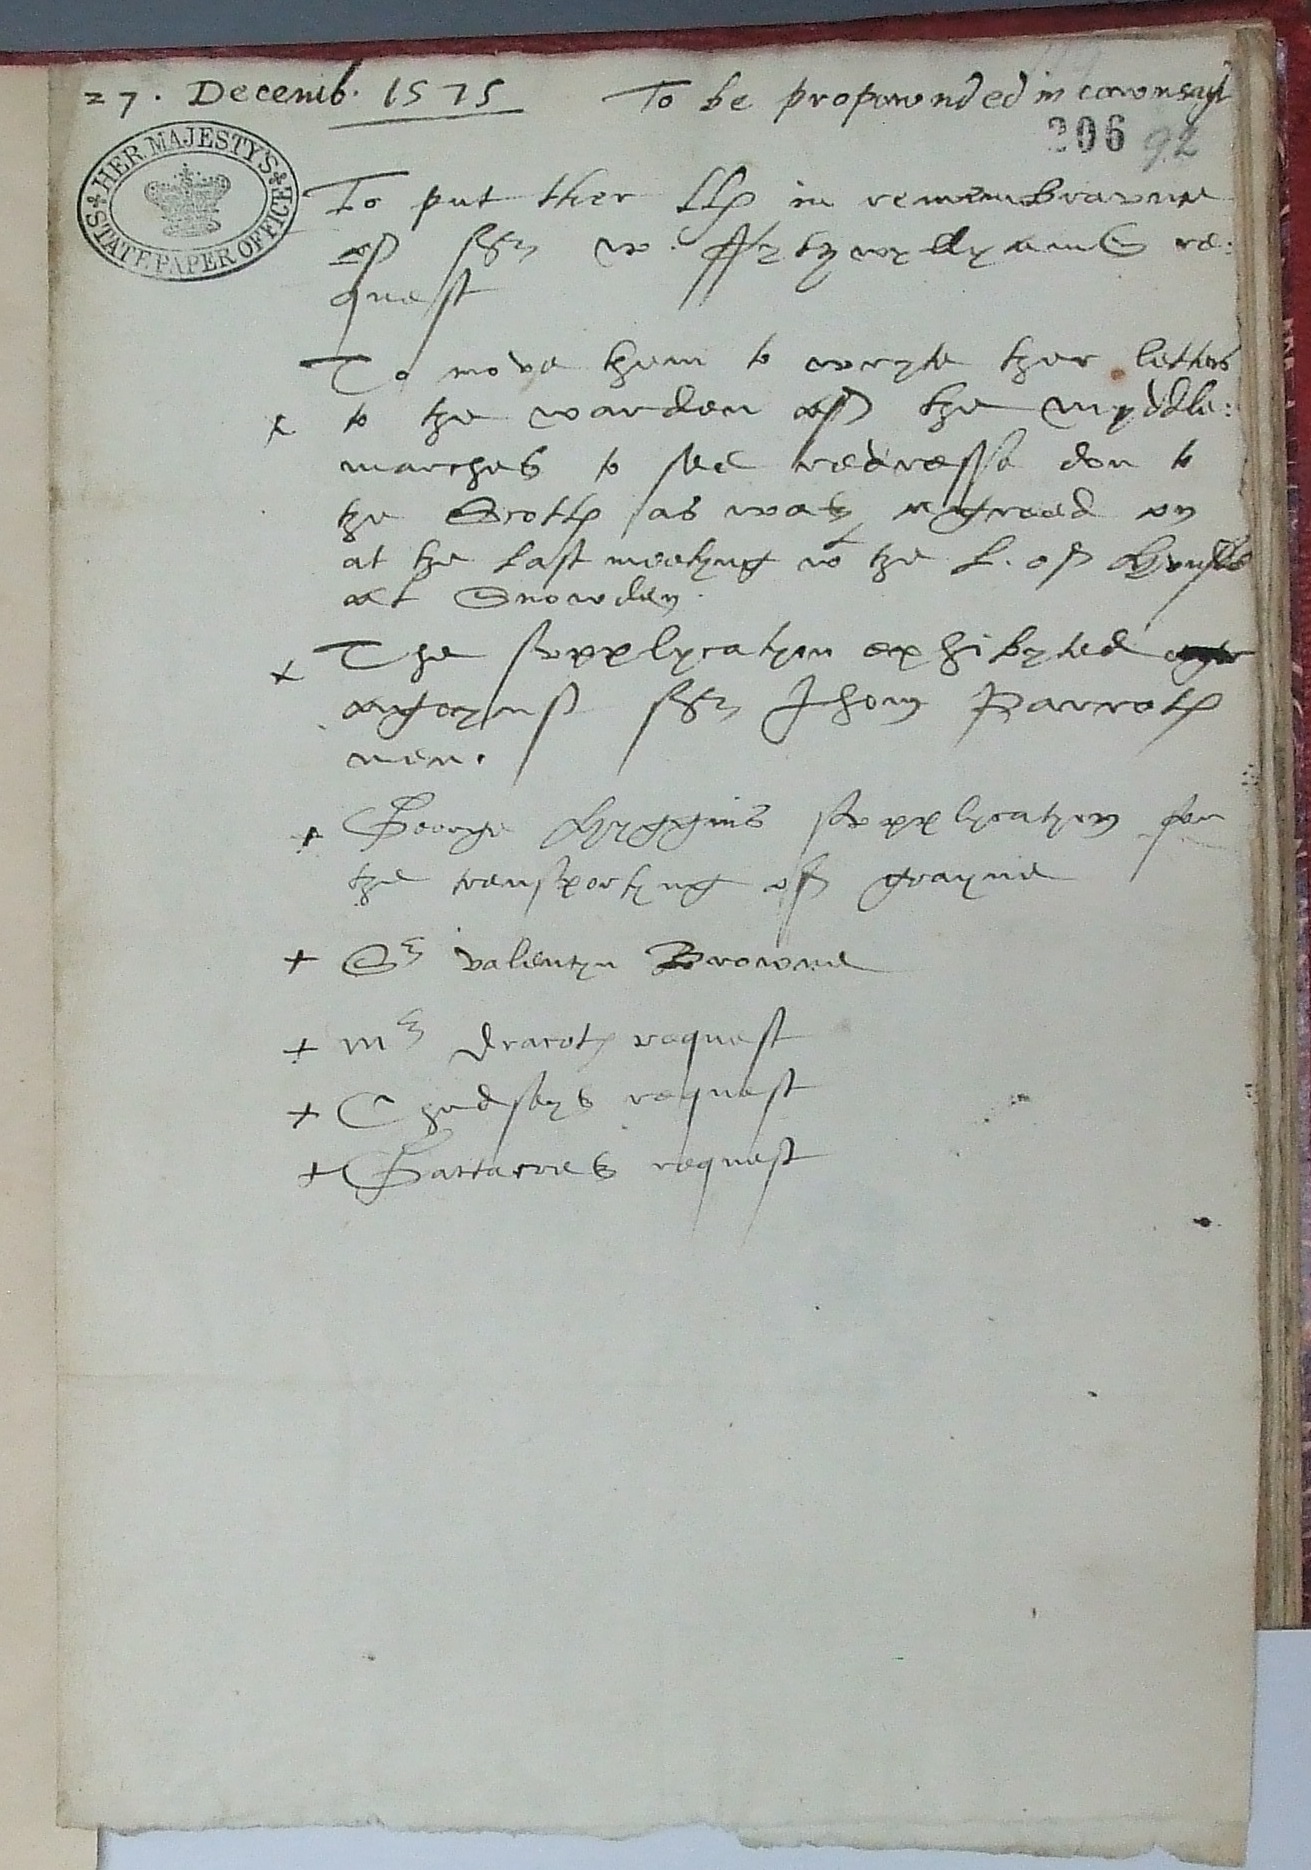 27. Decemb. 1575 To be propownded in cownsayl
206 92
HER MAJESTY'S STATE PAPER OFFICE
To put ther llp in remembraunce
of Syr w. ffytzwyllyams re:
quest
To move them to wryte ther letters
x to the warden off the myddle:
marches to see redresse don to
the Scotts as was agreed on
at the last meetyng wt the L. of
at Snowden.
x The supplycatyon exhibyted
agaynst Syr Jhon Parrots
men.
+ George Hyggins supplycatyon for
the transportyng off grayne
+ Sr valentyn Browne
+ Mr Dracots request
+ Chedseys request
+ request